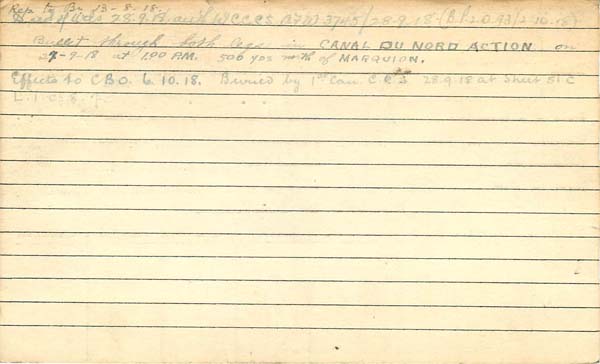 Rep to Bn 13-8-18.
Died of Wds 28.9.18 auth W.C.C.C.S. A7M 3745/28-9-18 (B.L. 2093/2-10-18)
Bullet through both legs in CANAL DU NORD ACTION on
27-9-18 at 1.00 P.M. 500 yds north of MARQUION.
Effects to CBO. 6.10.18. Buried by 1st Can C C S 28.9.18 at Sheet 51 C
L.1.